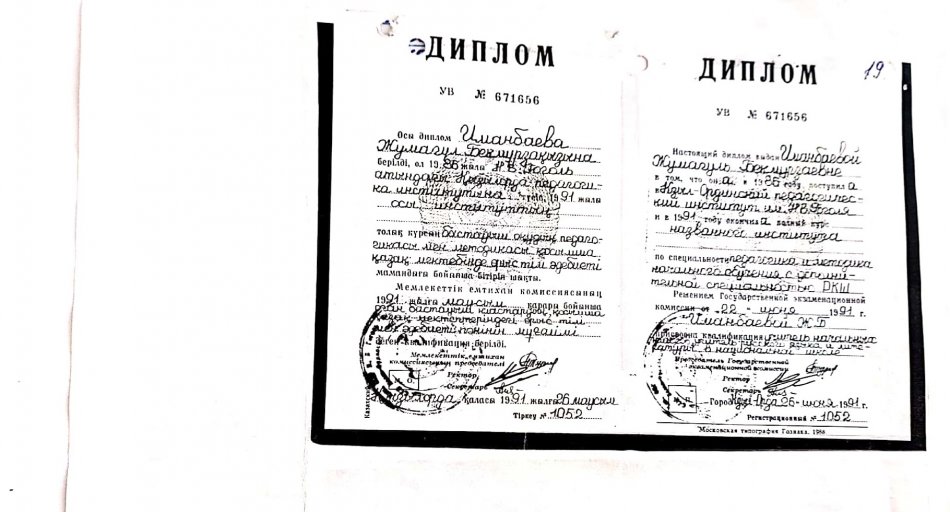 ДИПЛОМ
УВ № 671656
Осы диплом Иманбаева
Жумагул Бекмургақызына
берілді, ол 1986 жылы Н.В. Гоголь
атындағы Қызылорда педагоги-
ка институтына түсіп, 1991 жылы
осы институттың
толық курсын бастауыш оқудың педаго-
гикасы мен методикасы қосымша
қазақ мектебінде орыс тілі әдебиеті
мамандығы бойынша бітіріп шықты.
Мемлекеттік емтихан комиссиясының
1991 жылғы маусым қарары бойынша
ған бастауыш кластардың қосымша
қазақ мектептеріндегі орыс тілі
мен әдебиеті пәнінің мұғалімі
деген квалификация берілді.
Мемлекеттік емтихан
комиссиясының председателі
Ректор
Секретарь
Қызылорда қаласы 1991 жылғы 26 маусым
Тіркеу № 1052
19
ДИПЛОМ
УВ № 671656
Настоящий диплом выдан Иманбаевой
Жумагуль Бекмургаевне
в том, что она в 1986 году поступила
в Кзыл-Ординский педагогичес-
кий институт им. Н.В. Гоголя
и в 1991 году окончила полный курс
названного института
по специальности педагогика и методика
начального обучения с дополни-
тельной специальностью РКШ
Решением Государственной экзаменационной
комиссии от 22 - июня 1991 г.
Иманбаевой Ж.Б
присвоена квалификация учитель начальных
классов учитель русского языка и лите-
ратуры в национальной школе
Председатель Государственной
экзаменационной комиссии
Ректор
Секретарь
Город Кзыл-Орда 26 - июня 1991 г.
Регистрационный № 1052
Московская типография Гознака. 1988.